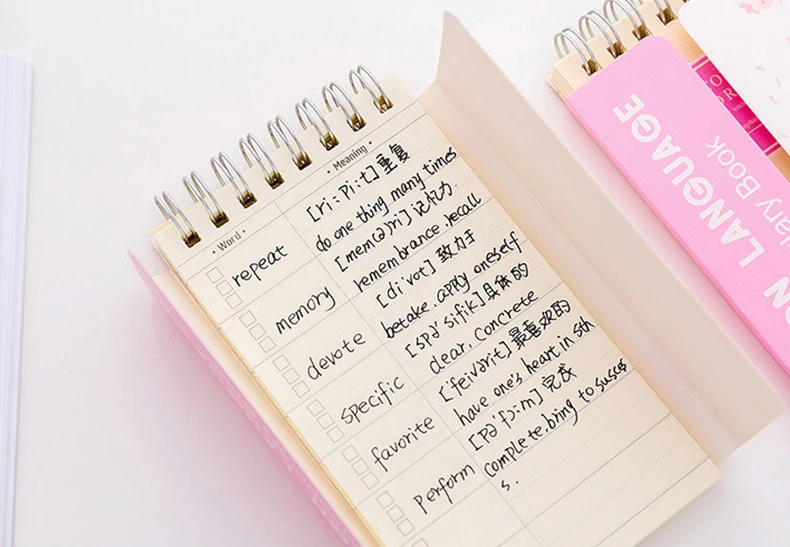 • Word •
• Meaning •
repeat
[ri:Pi:t] 重复
do one thing many times
memory
[mem(ə)ri] 记忆力.
remembrance. recall
devote
[di'vot] 致力于
betake. apply oneself
specific
[spə'sifik] 具体的
clear, concrete
favorite
[feivərit] 最喜欢的
have one's heart in sth
perform
[Pə'fɔ:m] 完成
complete bring to succes
s.
LANGUAGE
Book